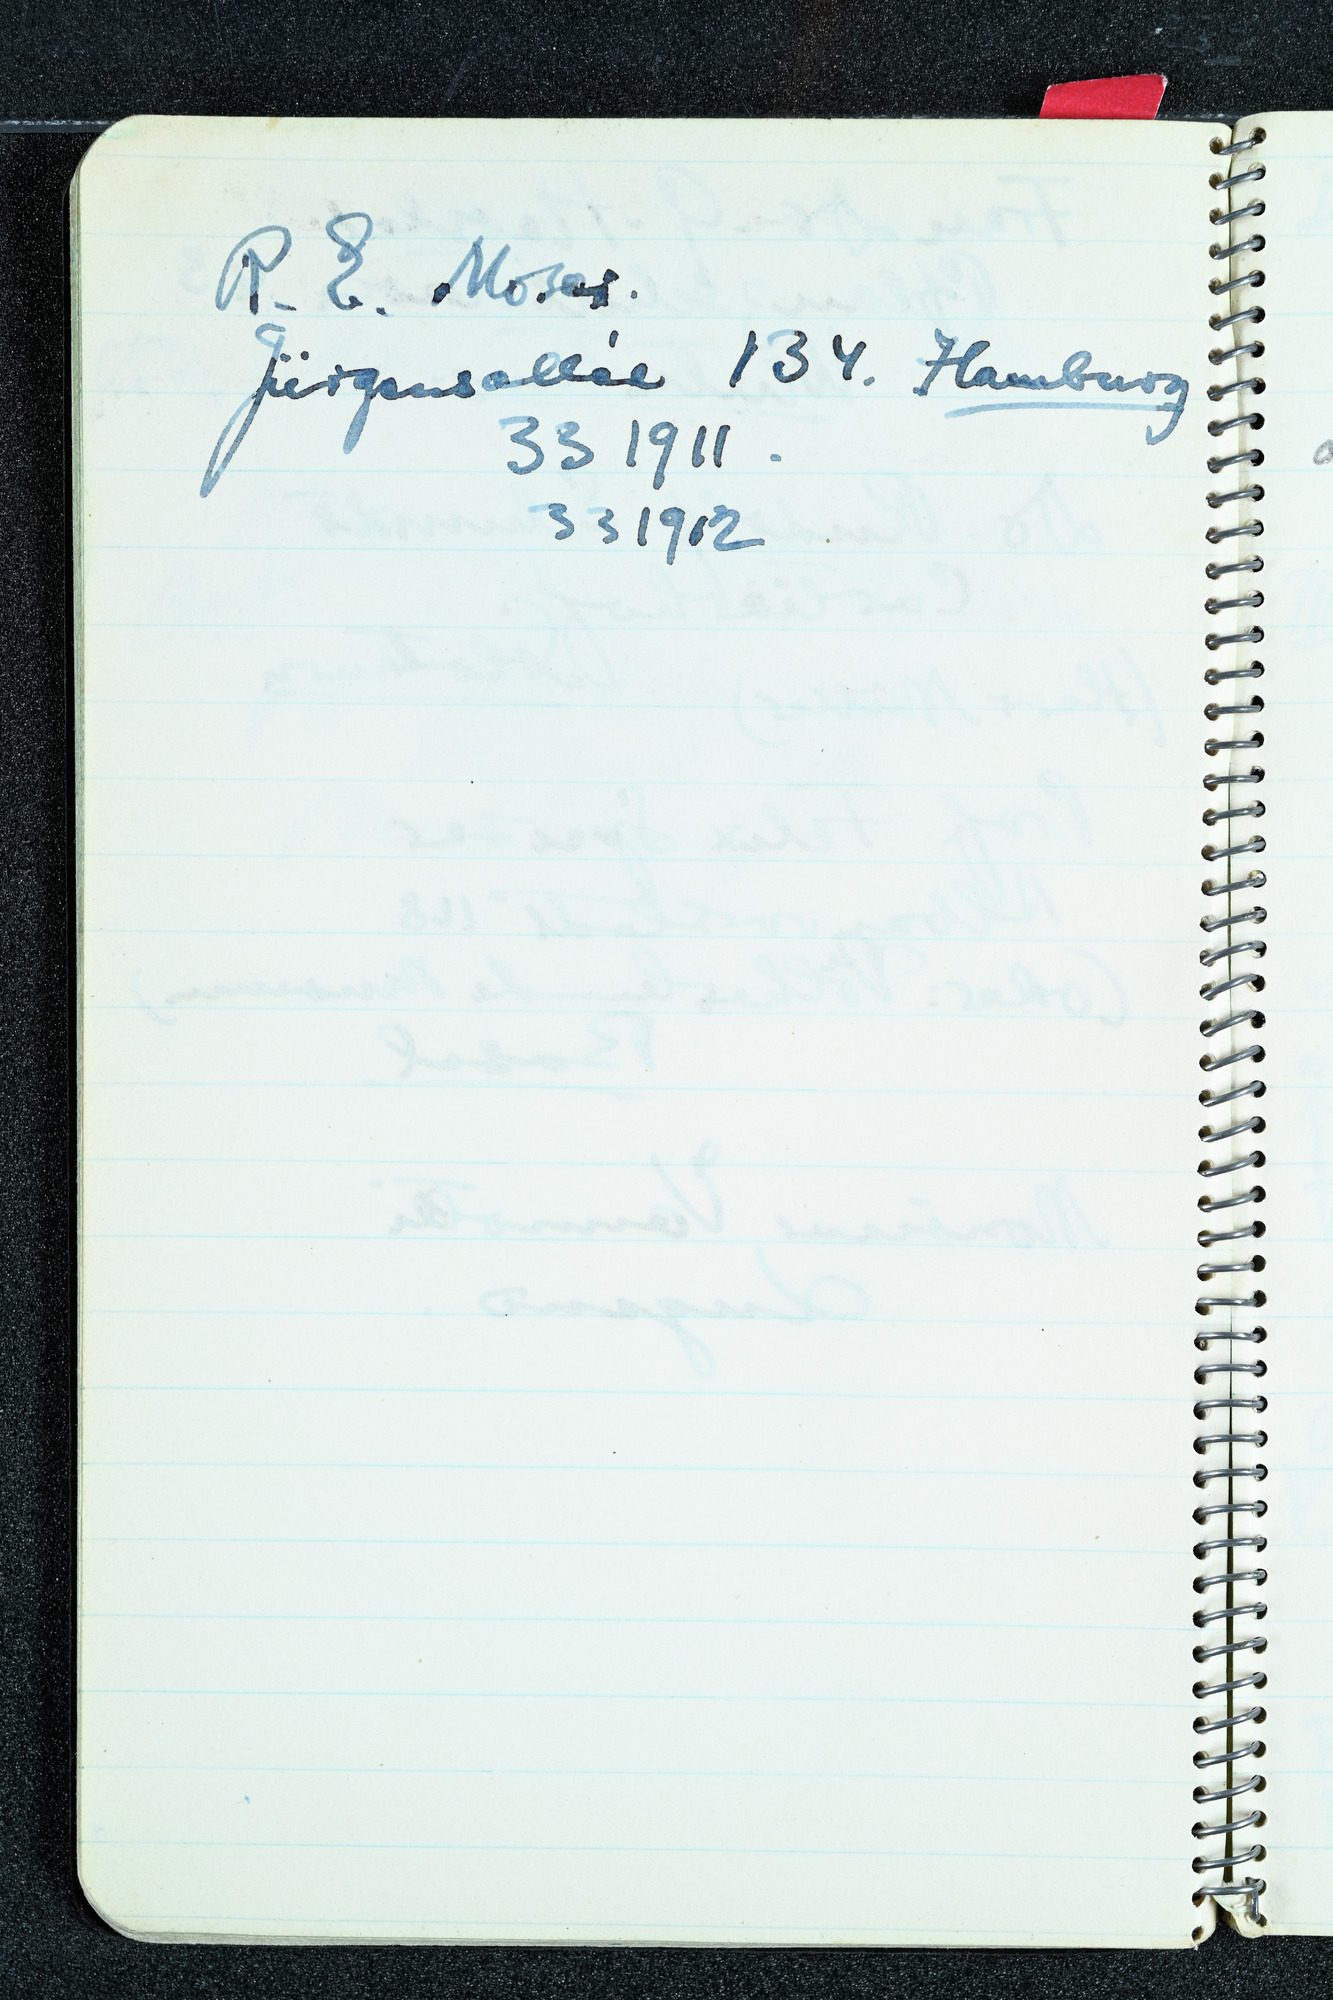 R. E. Moses.
Jürgensallée 134. Hamburg
33 1911.
33 1912